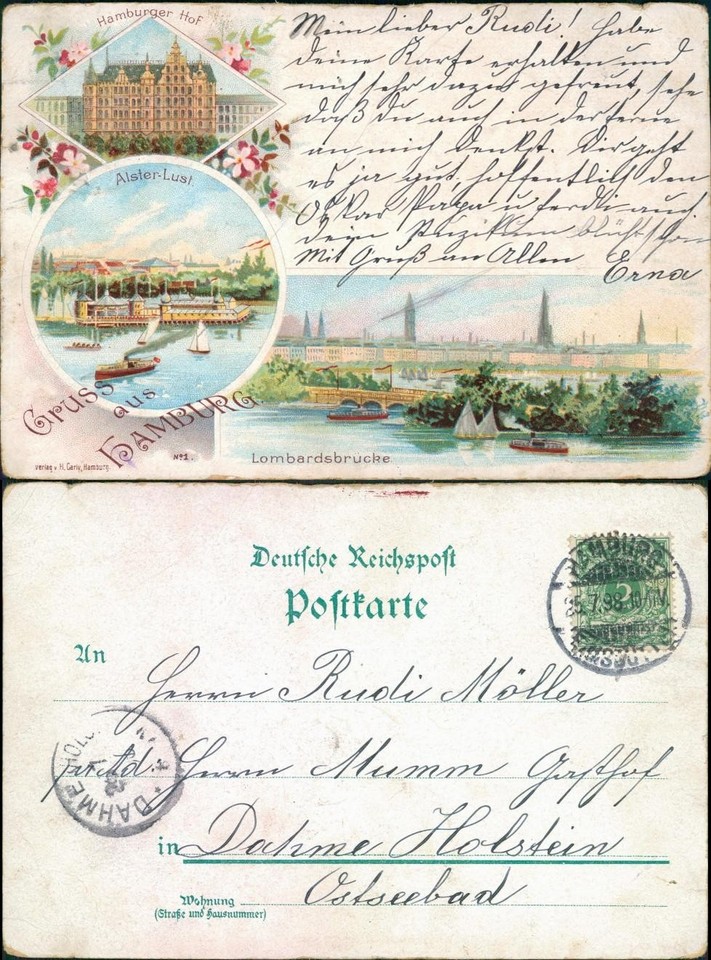 Hamburger Hof
Mein lieber Rudi! habe
deine Karte erhalten und
mich sehr dazu gefreut, sehe
daß du auch in der ferne
an mich denkst. Dir geht
es ja gut, hoffentlich den
Oskar Papa u ferdi auch
dein blüht schon
Mit Gruß an Allen Erna
Alster-Lust.
Gruss
aus
HAMBURG.
No 2.
Verlag v. H. Carly, Hamburg.
Lombardsbrücke
Deutsche Reichspost
Postkarte
HAMBURG
25.7.98.10-11V.
5
An
Herrn Rudi Möller
Adr. Herrn Mumm Gasthof
in Dahme Holstein
Ostseebad
Wohnung
(Straße und Hausnummer)
DAHME